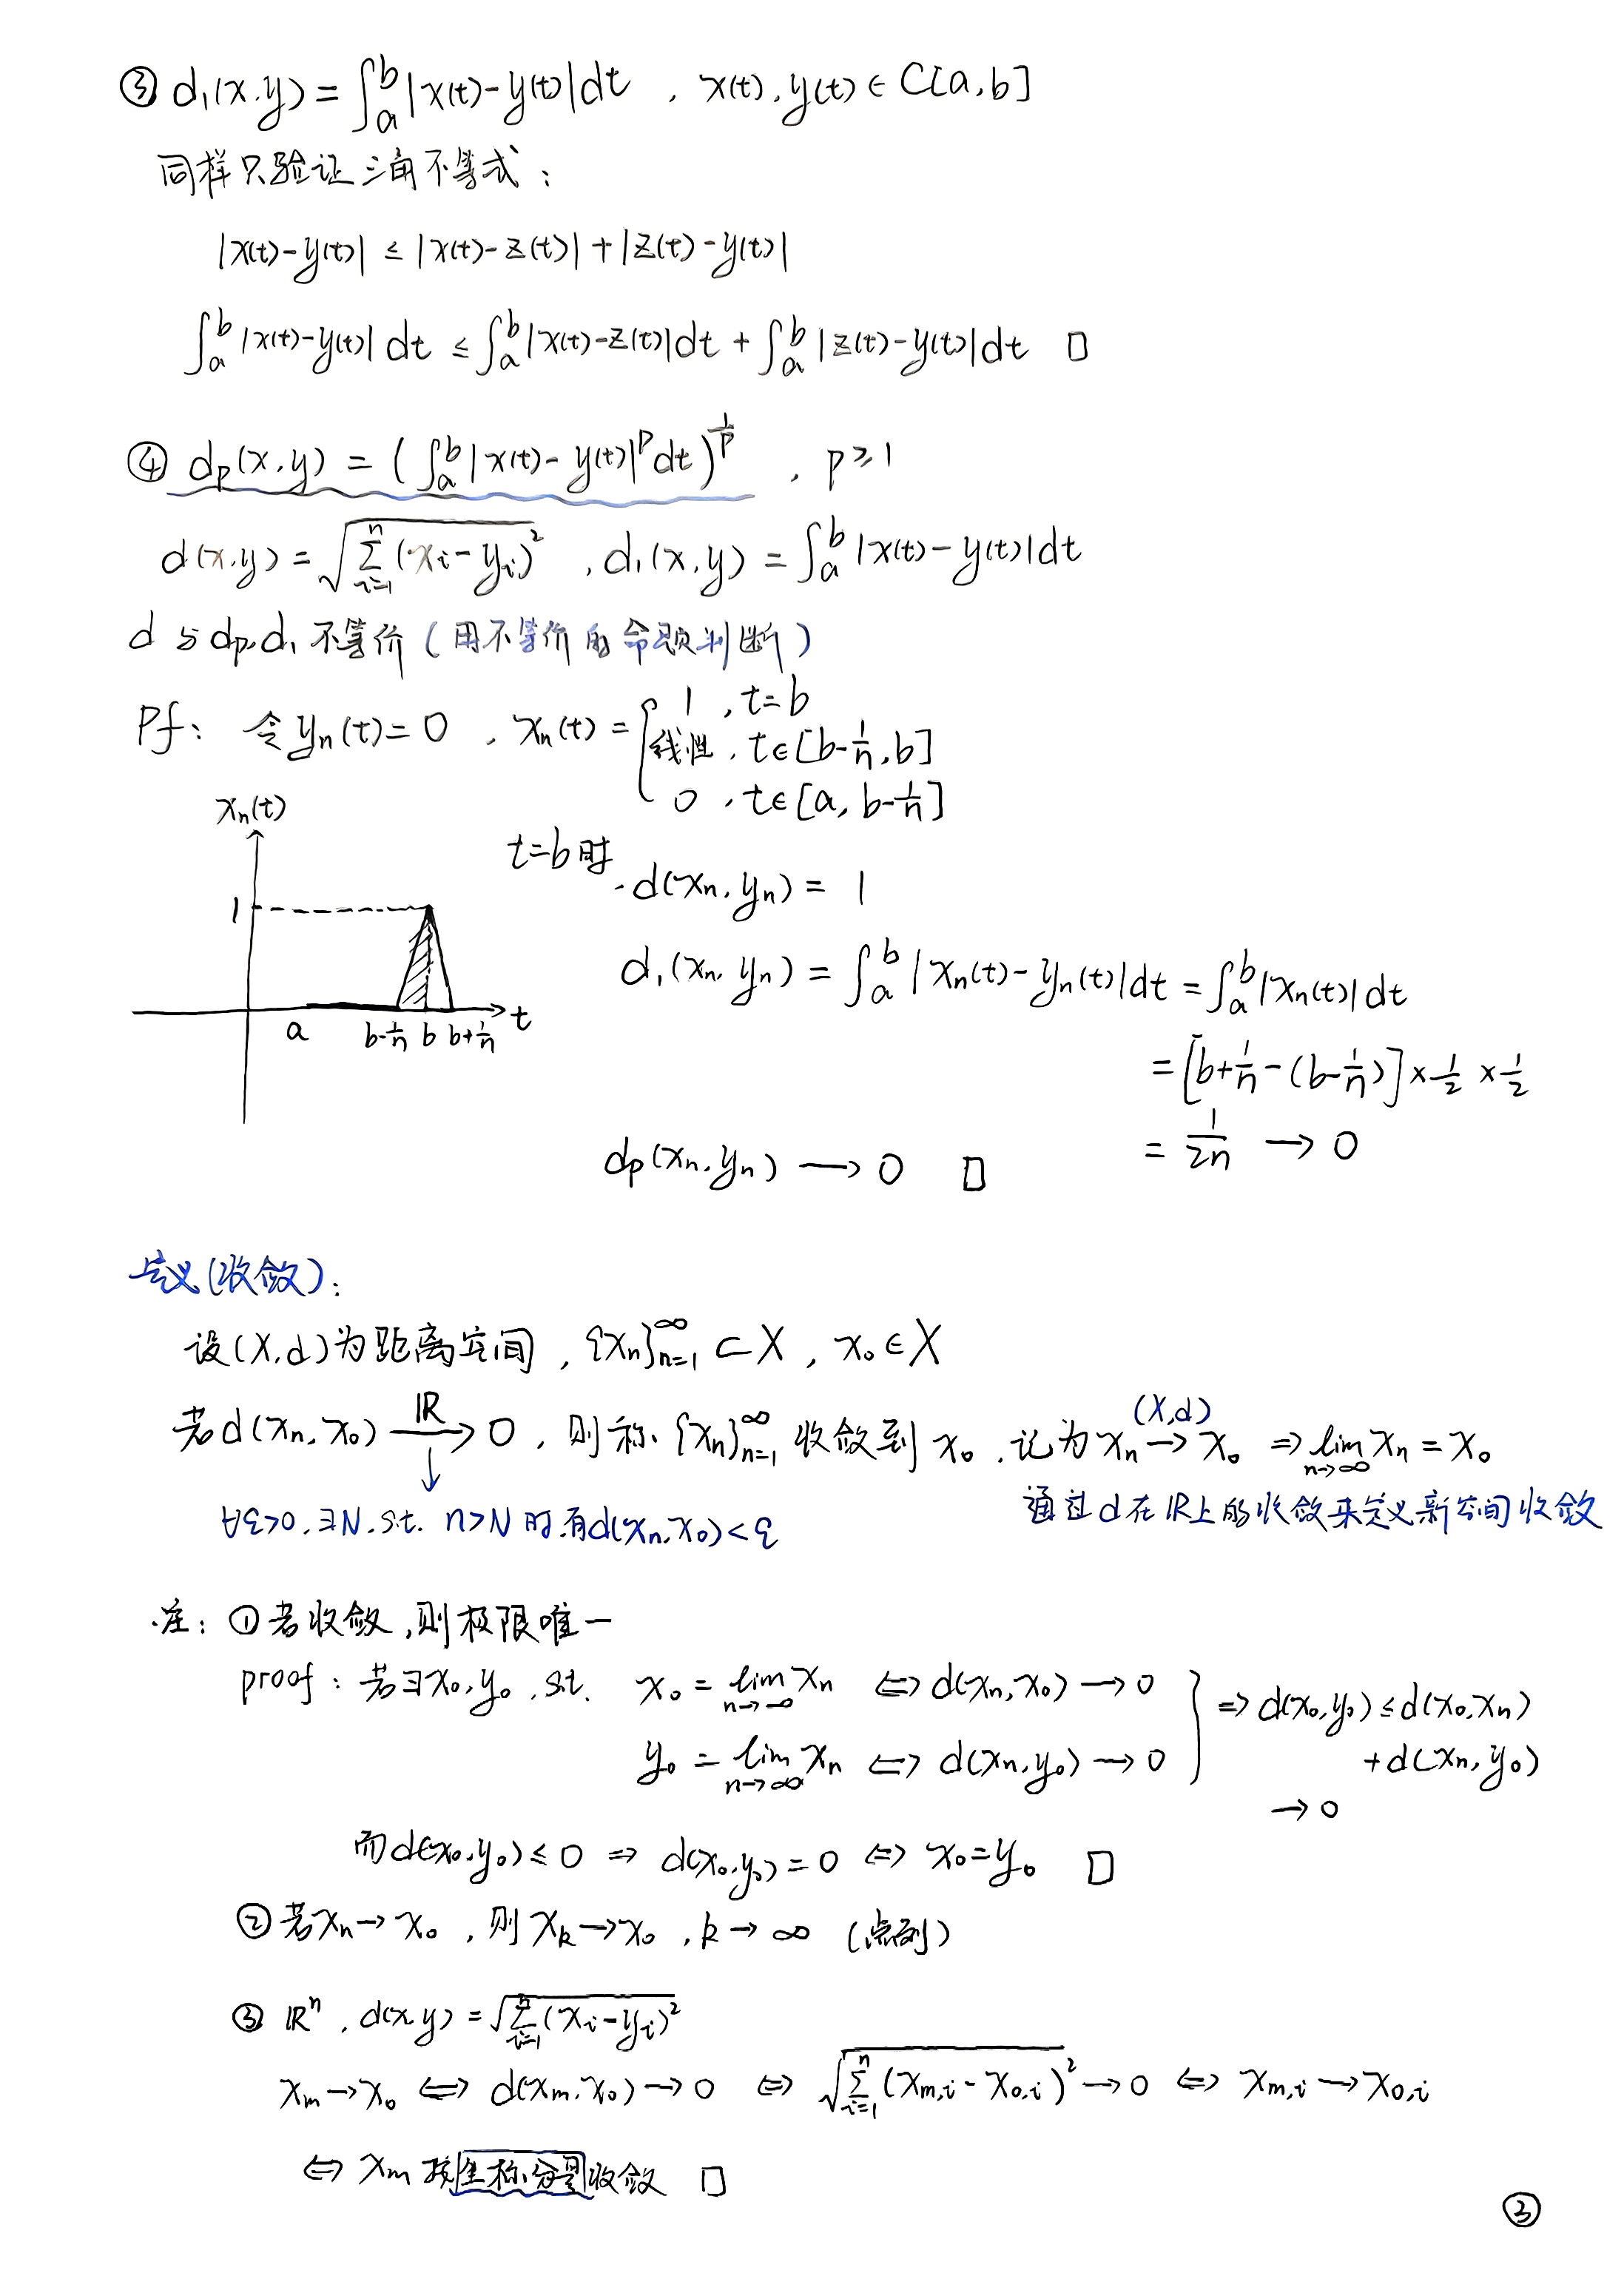 ③ d₁(x,y) = ∫ₐᵇ |x(t)-y(t)|dt , x(t),y(t) ∈ C[a,b]
同样只验证三角不等式：
|x(t)-y(t)| ≤ |x(t)-z(t)| + |z(t)-y(t)|
∫ₐᵇ |x(t)-y(t)| dt ≤ ∫ₐᵇ |x(t)-z(t)|dt + ∫ₐᵇ |z(t)-y(t)|dt □
④ dp(x,y) = (∫ₐᵇ |x(t)-y(t)|ᵖ dt)^(1/p) , p≥1
d(x,y) = √(∑_{i=1}^{n} (xᵢ-yᵢ)²) , d₁(x,y) = ∫ₐᵇ |x(t)-y(t)|dt
d与dp,d₁不等价（用不等价的命题判断）
Pf: 令yₙ(t)=0 , xₙ(t) = { 1 , t=b
线性 , t∈[b-1/n,b]
0 , t∈[a,b-1/n]
xₙ(t)
1
a b-1/n b b+1/n t
t=b时 , d(xₙ,yₙ) = 1
d₁(xₙ,yₙ) = ∫ₐᵇ |xₙ(t)-yₙ(t)|dt = ∫ₐᵇ |xₙ(t)| dt
= [b+1/n-(b-1/n)] × 1/2 × 1/2
= 1/2n → 0
dp(xₙ,yₙ) → 0 □
定义(收敛)：
设(X,d)为距离空间 , {xₙ}_{n=1}^{∞} ⊂ X , x₀∈X
若d(xₙ,x₀) →(ℝ) 0 , 则称{xₙ}_{n=1}^{∞} 收敛到x₀ , 记为xₙ →(X,d) x₀ ⇒ lim_{n→∞} xₙ = x₀
↓
∀ε>0,∃N,s.t. n>N时,有d(xₙ,x₀)<ε
通过d在ℝ上的收敛来定义新空间收敛
注：①若收敛,则极限唯一
proof：若∃x₀,y₀,s.t. x₀ = lim_{n→∞} xₙ ⇔ d(xₙ,x₀) → 0 } ⇒ d(x₀,y₀) ≤ d(x₀,xₙ)
y₀ = lim_{n→∞} xₙ ⇔ d(xₙ,y₀) → 0 + d(xₙ,y₀)
→ 0
而d(x₀,y₀) ≤ 0 ⇒ d(x₀,y₀) = 0 ⇔ x₀=y₀ □
②若xₙ→x₀ , 则xₖ→x₀ , k→∞ (点列)
③ ℝⁿ , d(x,y) = √(∑_{i=1}^{n} (xᵢ-yᵢ)²)
xₘ→x₀ ⇔ d(xₘ,x₀)→0 ⇔ √(∑_{i=1}^{n} (x_{m,i}-x_{0,i})²) → 0 ⇔ x_{m,i}→x_{0,i}
⇔ xₘ按坐标分量收敛 □
③